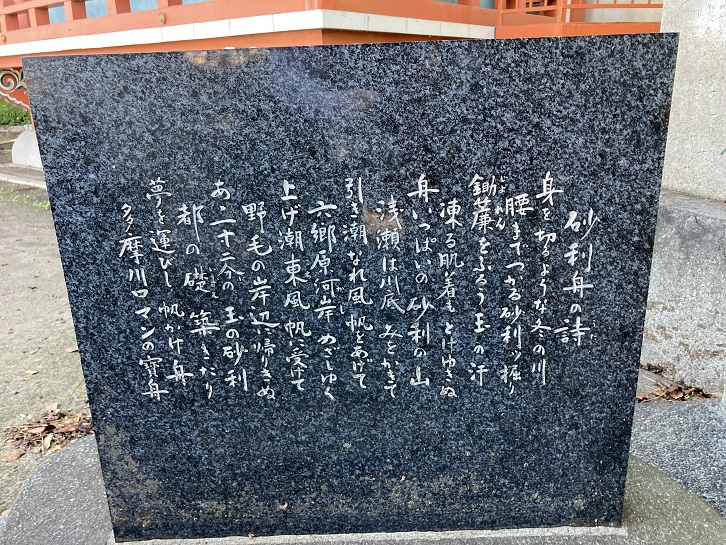 砂利舟の詩
身を切るような冬の川
腰までつかる砂利ッ掘り
鋤簾をふるう玉の汗
凍る肌着もとはゆきぬ
舟いっぱいの砂利の山
浅瀬は川底 みをかきて
引き潮なれ風 帆をあげて
六郷原河岸めざしゆく
上げ潮東風 帆に受けて
野毛の岸辺に帰りきぬ
あゝ 玉の砂利
都の礎 築きたり
夢を運びし 帆かけ舟
多摩川ロマンの宝舟